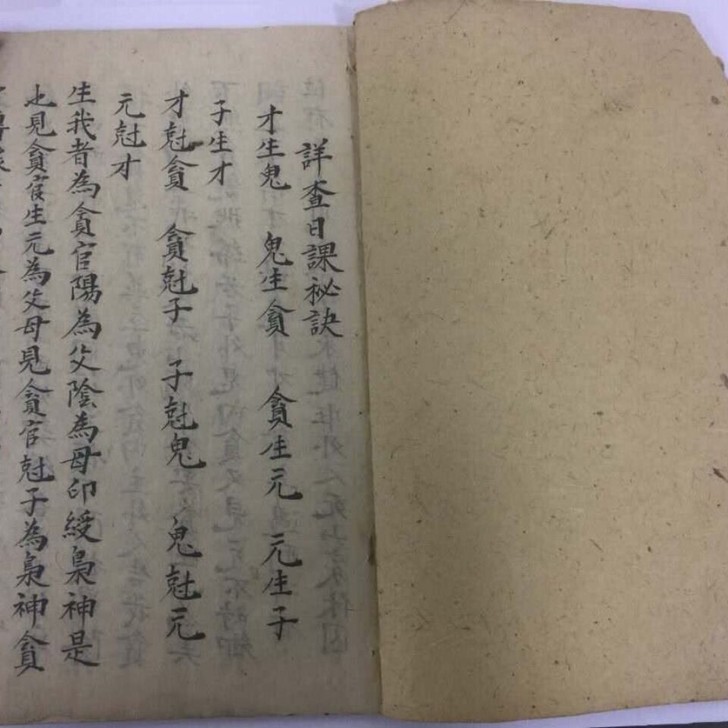 詳查日課秘訣
才生鬼 鬼生貪 貪生元 元生子
子生才
才尅貪 貪尅子 子尅鬼 鬼尅元
元尅才
生我者為貪官陽為父陰為母印綬梟神是
止見貪官生元為父母見貪官尅子為梟神貪